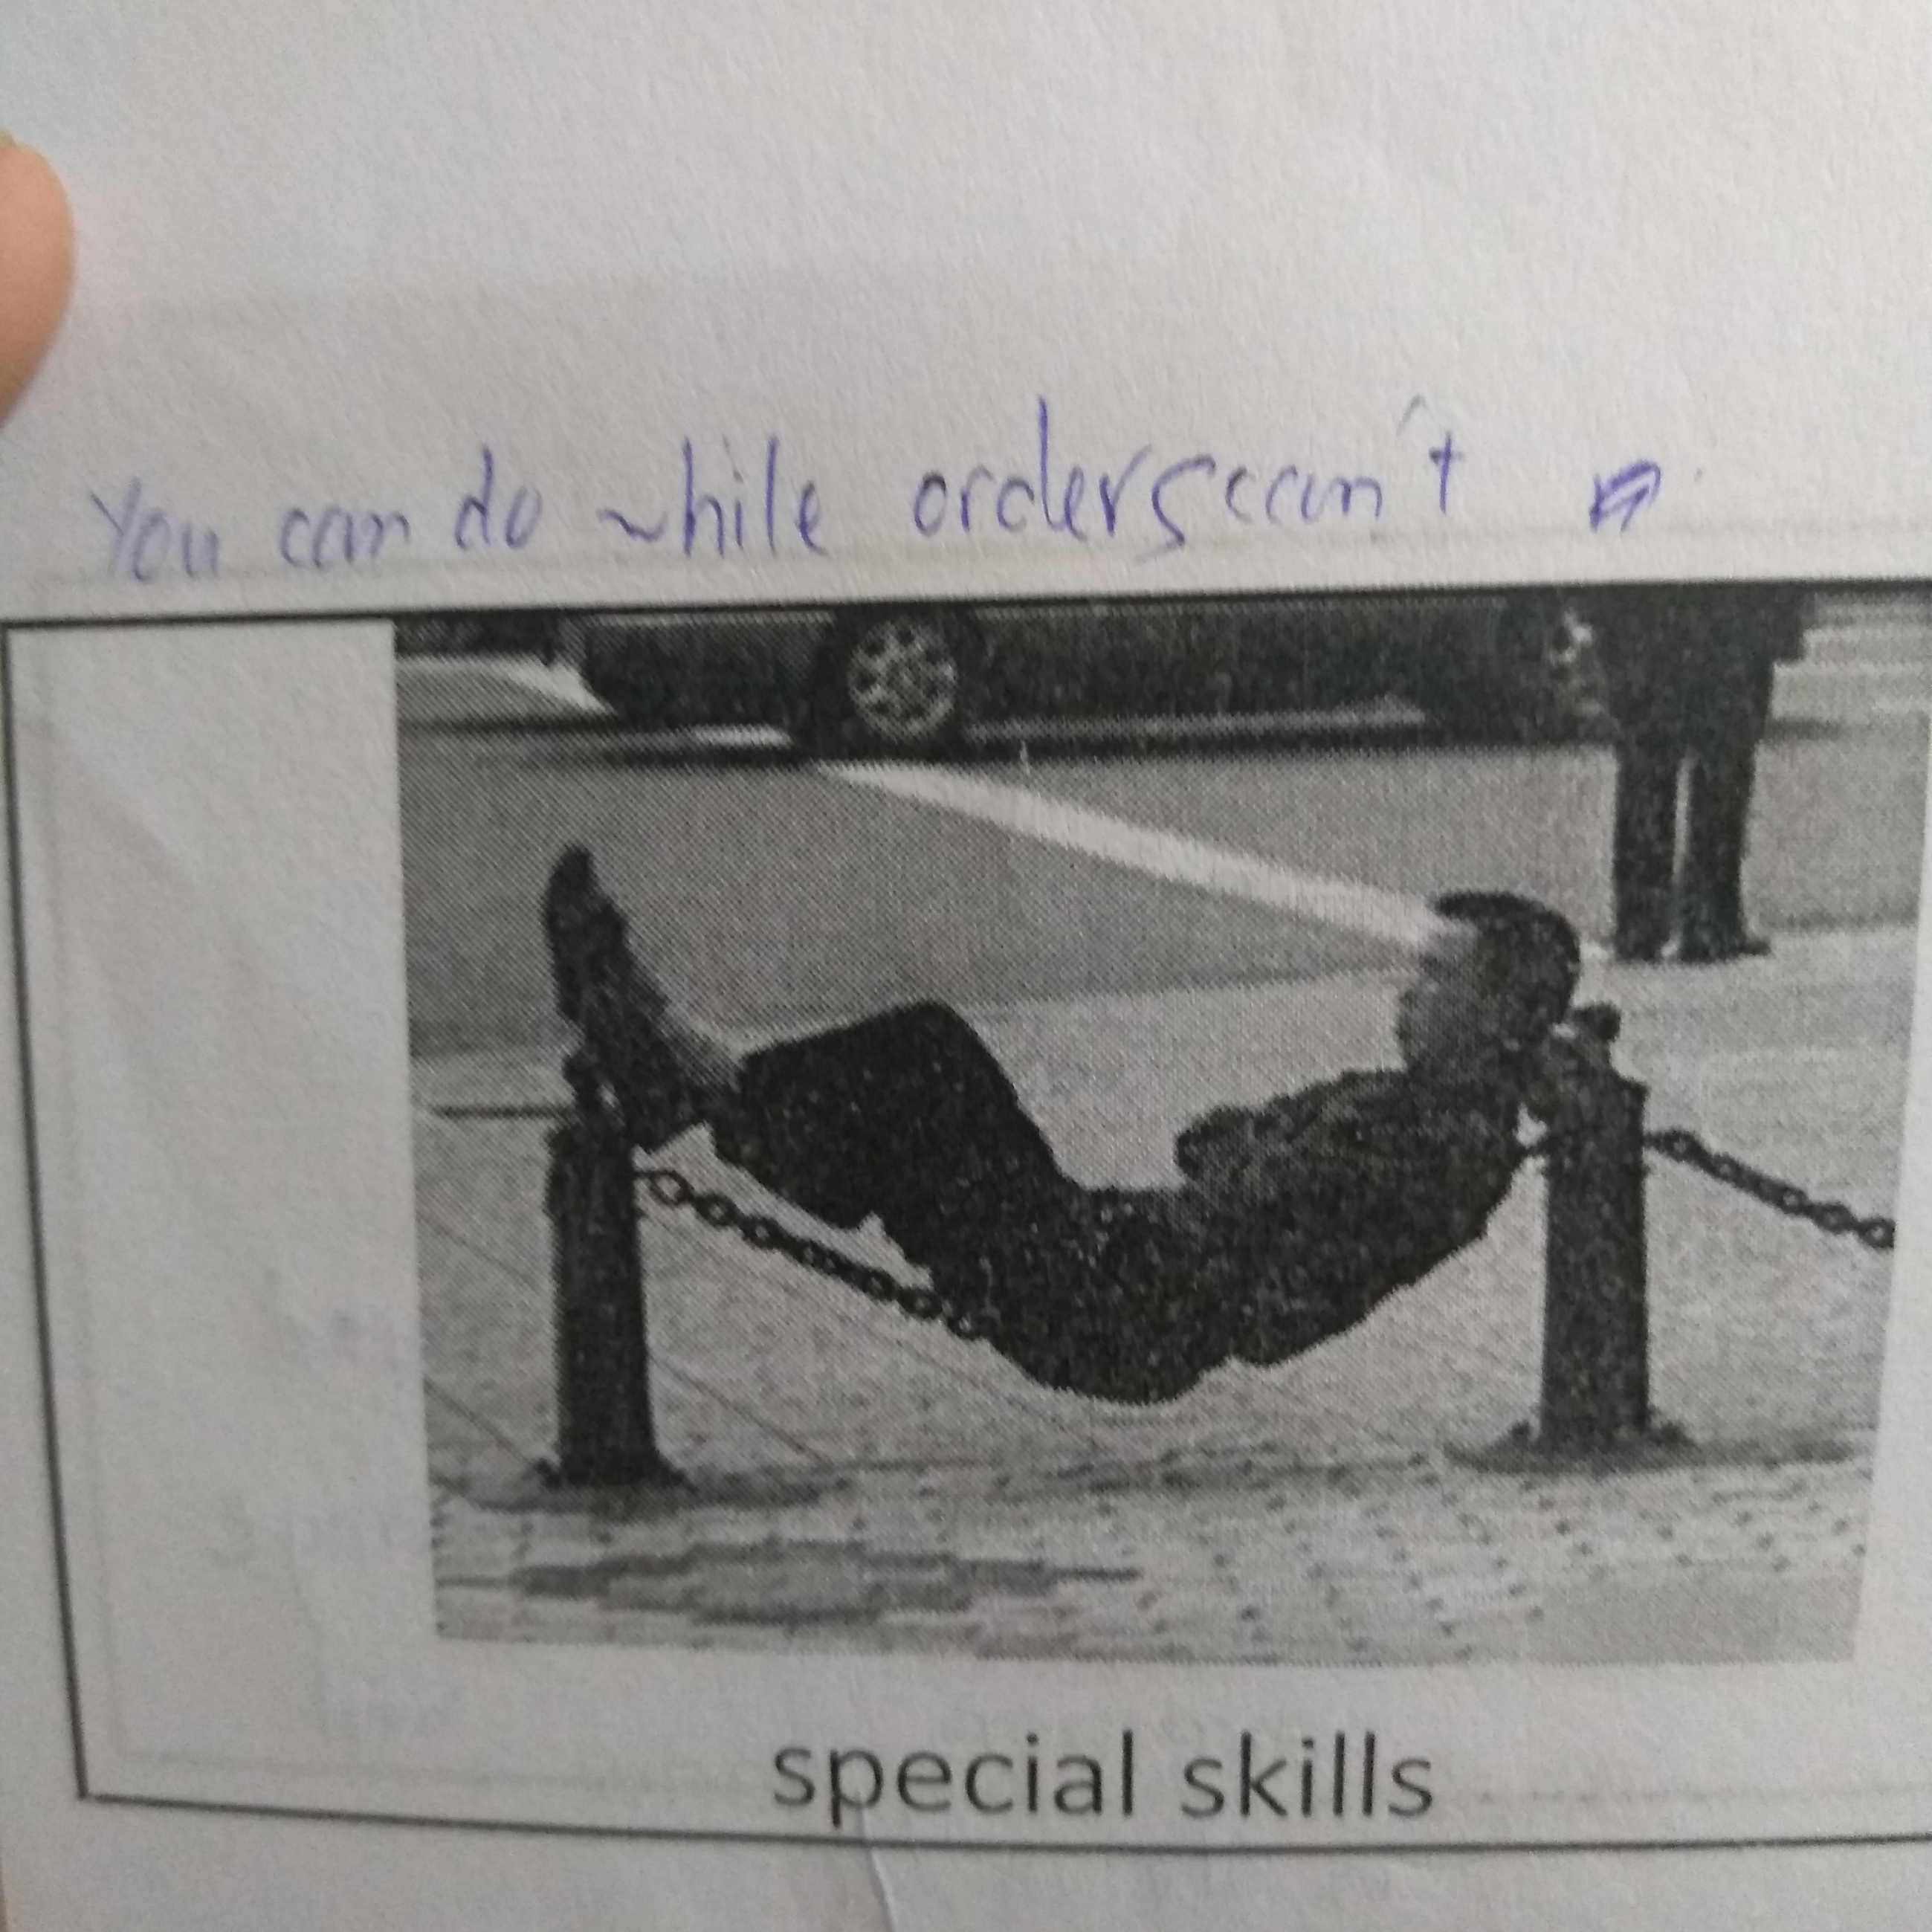 You can do while orders can't
special skills